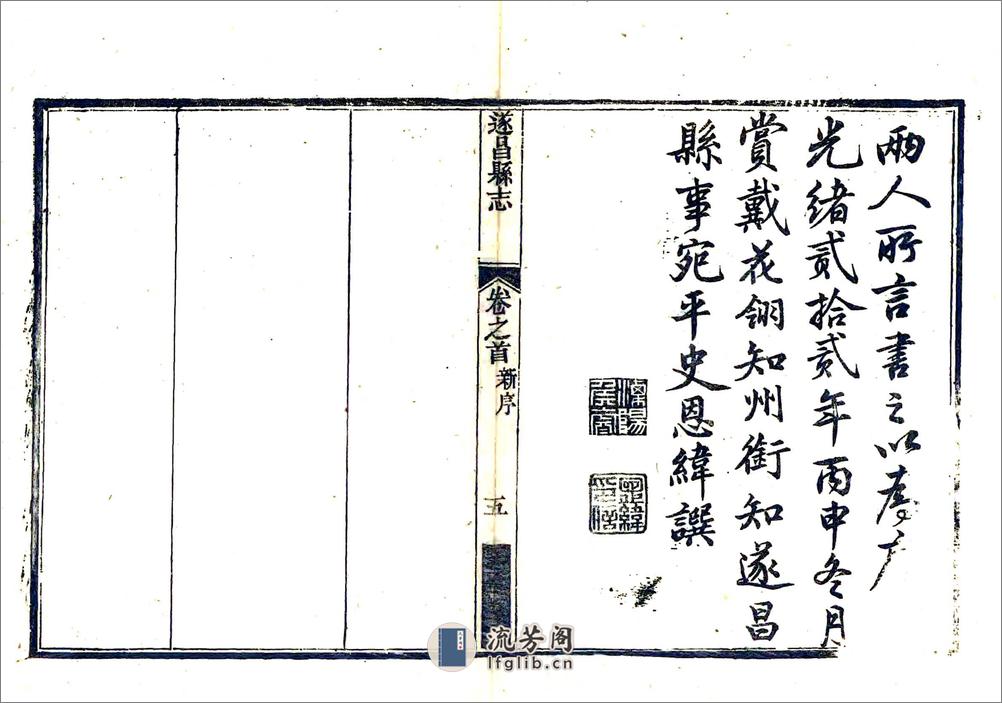 兩人所言書之以
光緒貳拾貳年丙申冬月
賞戴花翎知州銜知遂昌
縣事宛平史恩緯撰
遂昌縣志
卷之首 新序
五
流芳阁
lfglib.cn